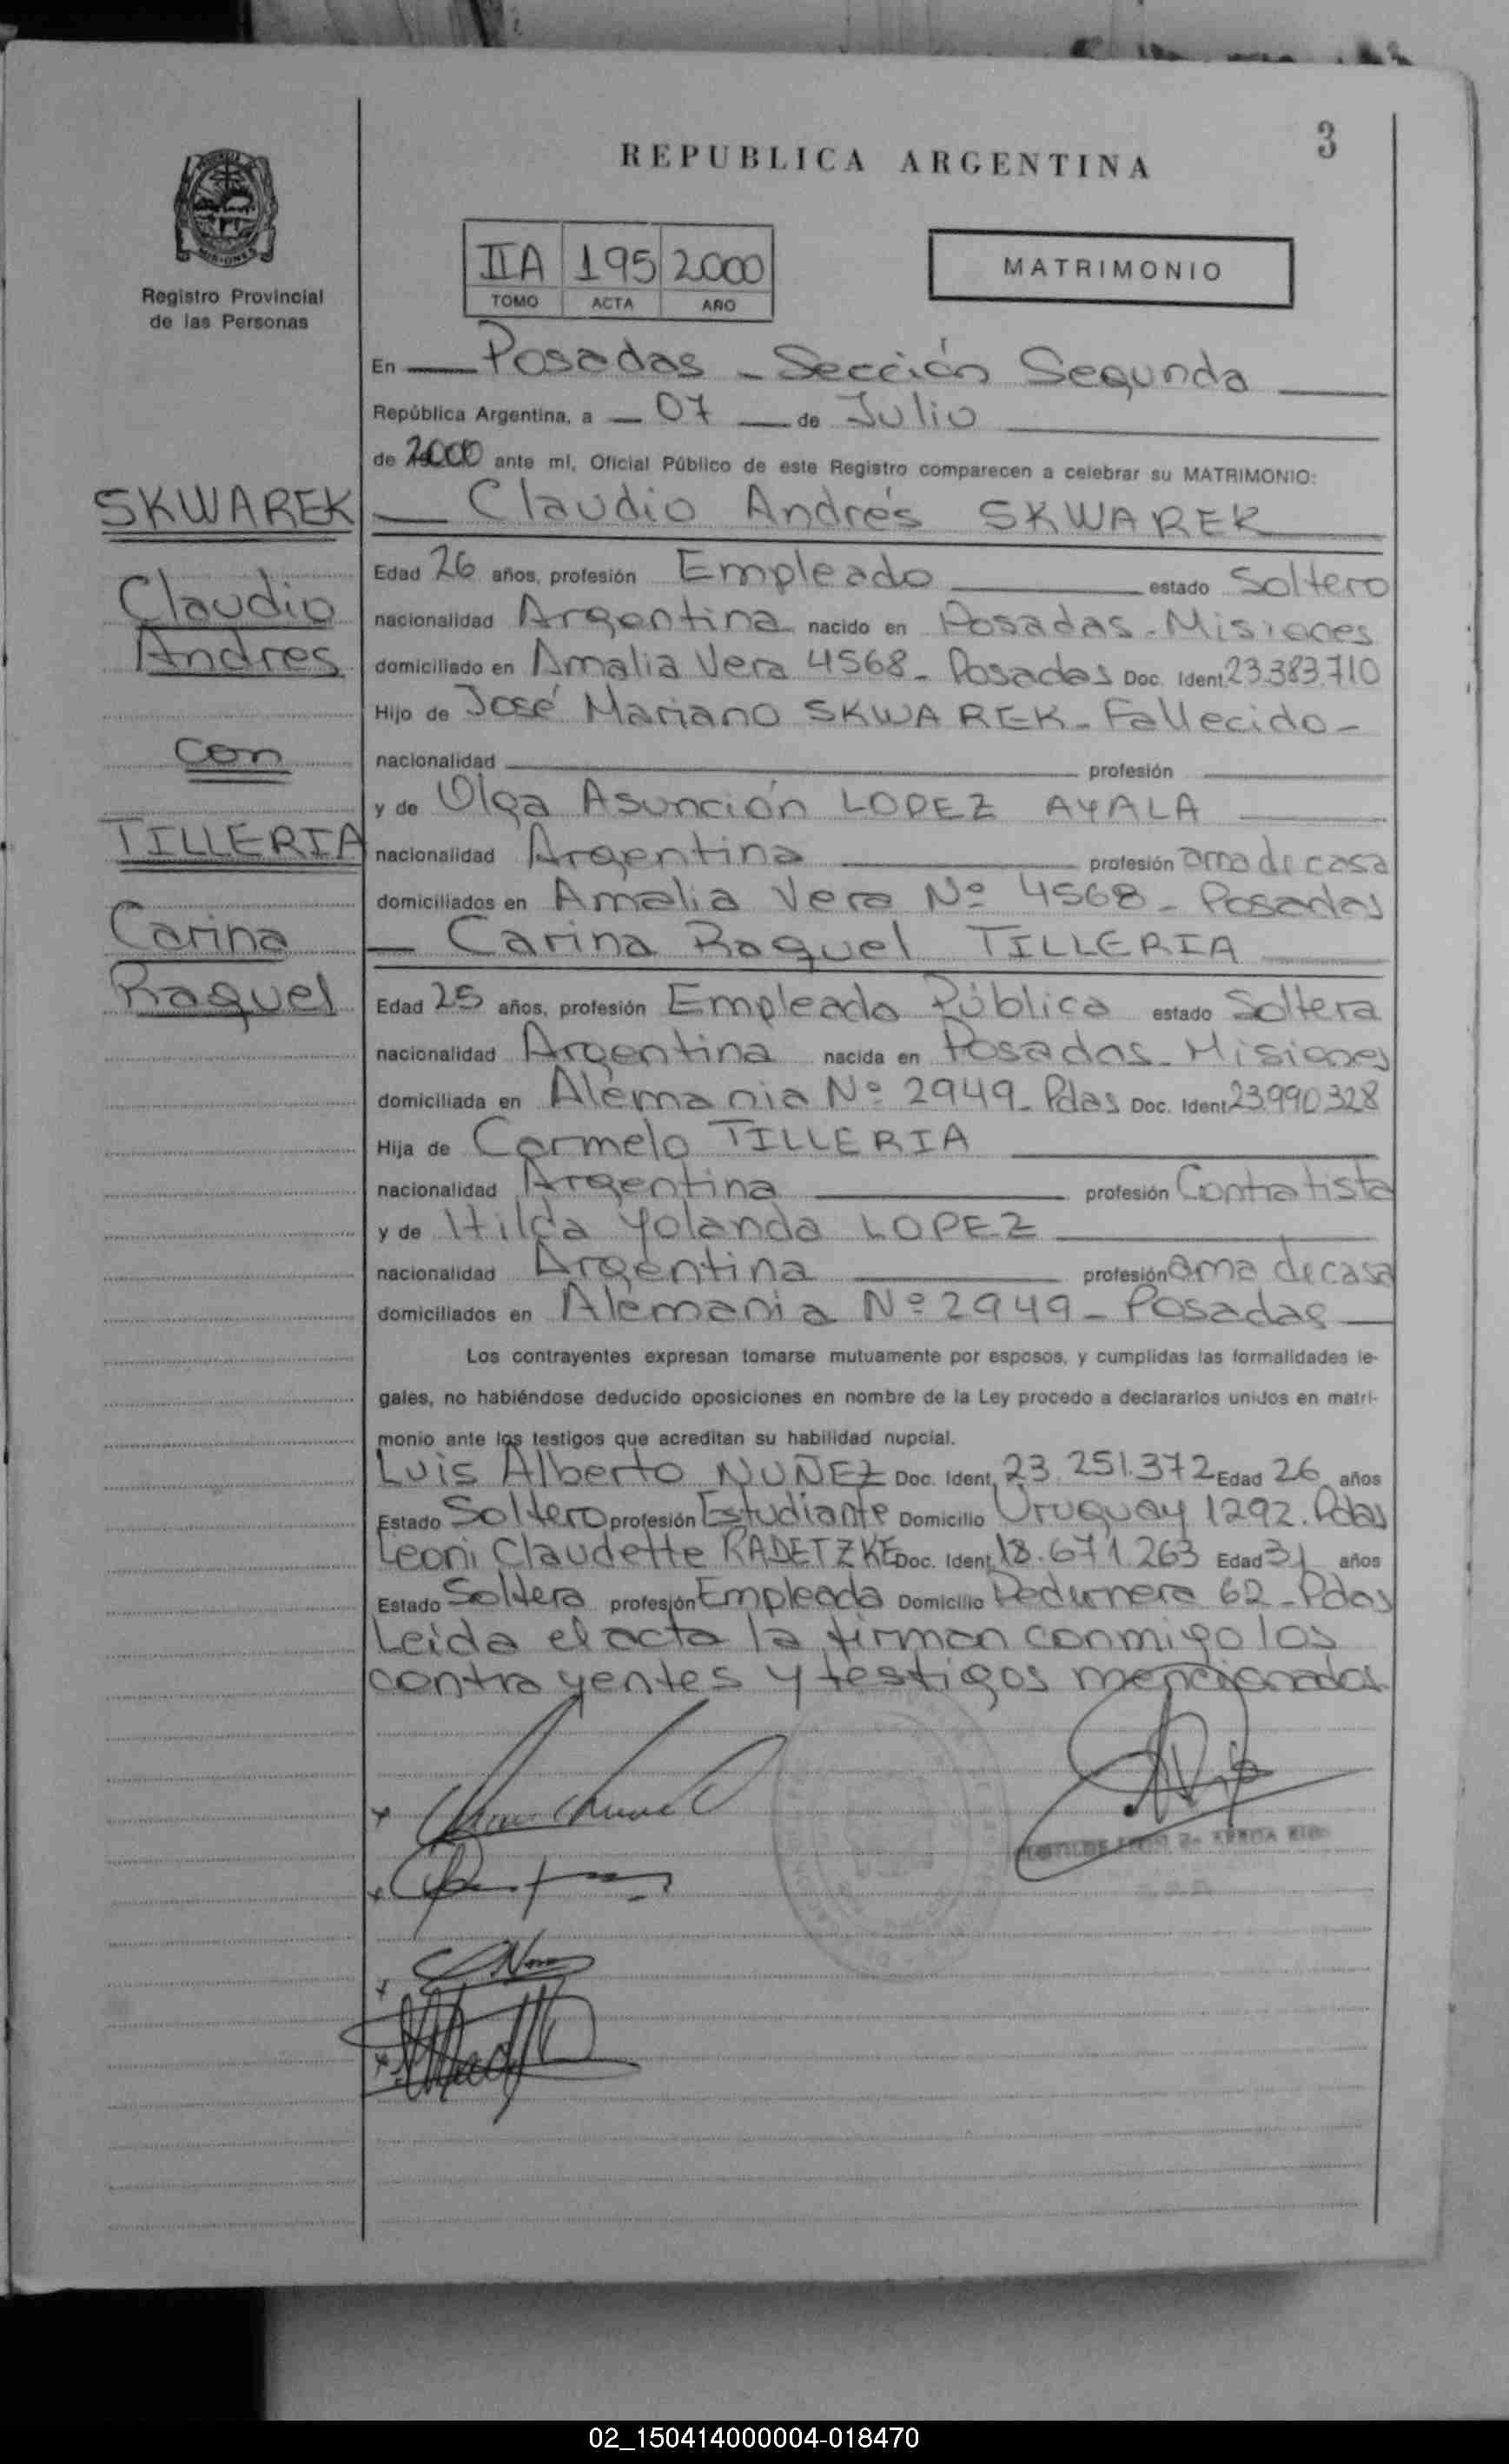 3
REPUBLICA ARGENTINA
MISIONES
Registro Provincial
de las Personas
IIA 195 2000
TOMO ACTA AÑO
MATRIMONIO
En Posadas - Sección Segunda
República Argentina, a 07 de Julio
de 2000 ante mí, Oficial Público de este Registro comparecen a celebrar su MATRIMONIO:
SKWAREK
Claudio
Andres
con
TILLERIA
Carina
Raquel
Claudio Andrés SKWAREK
Edad 26 años, profesión Empleado estado Soltero
nacionalidad Argentina nacido en Posadas - Misiones
domiciliado en Amalia Vera 4568 - Posadas Doc. Ident. 23.383.710
Hijo de José Mariano SKWAREK - Fallecido -
nacionalidad profesión
y de Olga Asunción LOPEZ AYALA
nacionalidad Argentina profesión ama de casa
domiciliados en Amalia Vera Nº 4568 - Posadas
Carina Raquel TILLERIA
Edad 25 años, profesión Empleada Pública estado Soltera
nacionalidad Argentina nacida en Posadas - Misiones
domiciliada en Alemania Nº 2949 - Pdas Doc. Ident. 23.990.328
Hija de Carmelo TILLERIA
nacionalidad Argentina profesión Contratista
y de Hilda Yolanda LOPEZ
nacionalidad Argentina profesión ama de casa
domiciliados en Alemania Nº 2949 - Posadas
Los contrayentes expresan tomarse mutuamente por esposos, y cumplidas las formalidades le-
gales, no habiéndose deducido oposiciones en nombre de la Ley procedo a declararlos unidos en matri-
monio ante los testigos que acreditan su habilidad nupcial.
Luis Alberto NUÑEZ Doc. Ident. 23.251.372 Edad 26 años
Estado Soltero profesión Estudiante Domicilio Uruguay 1292. Pdas
Leoni Claudette RADETZKE Doc. Ident. 18.671.263 Edad 31 años
Estado Soltera profesión Empleada Domicilio Pedernera 62 - Pdas
Leida el acta la firman conmigo los
contrayentes y testigos mencionados
02_150414000004-018470